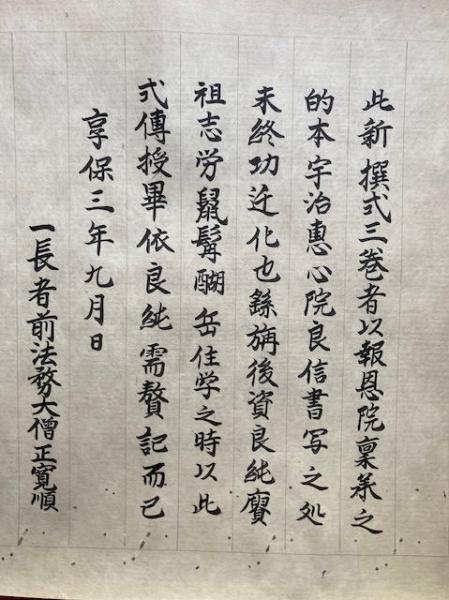 此新撰式三巻者以報恩院稟承之
的本宇治惠心院良信書写之処
未終功迁化也後資良純賡
祖志労醐岳住学之時以此
式傳授畢依良純需贅記而已
享保三年九月日
一長者前法務大僧正寛順